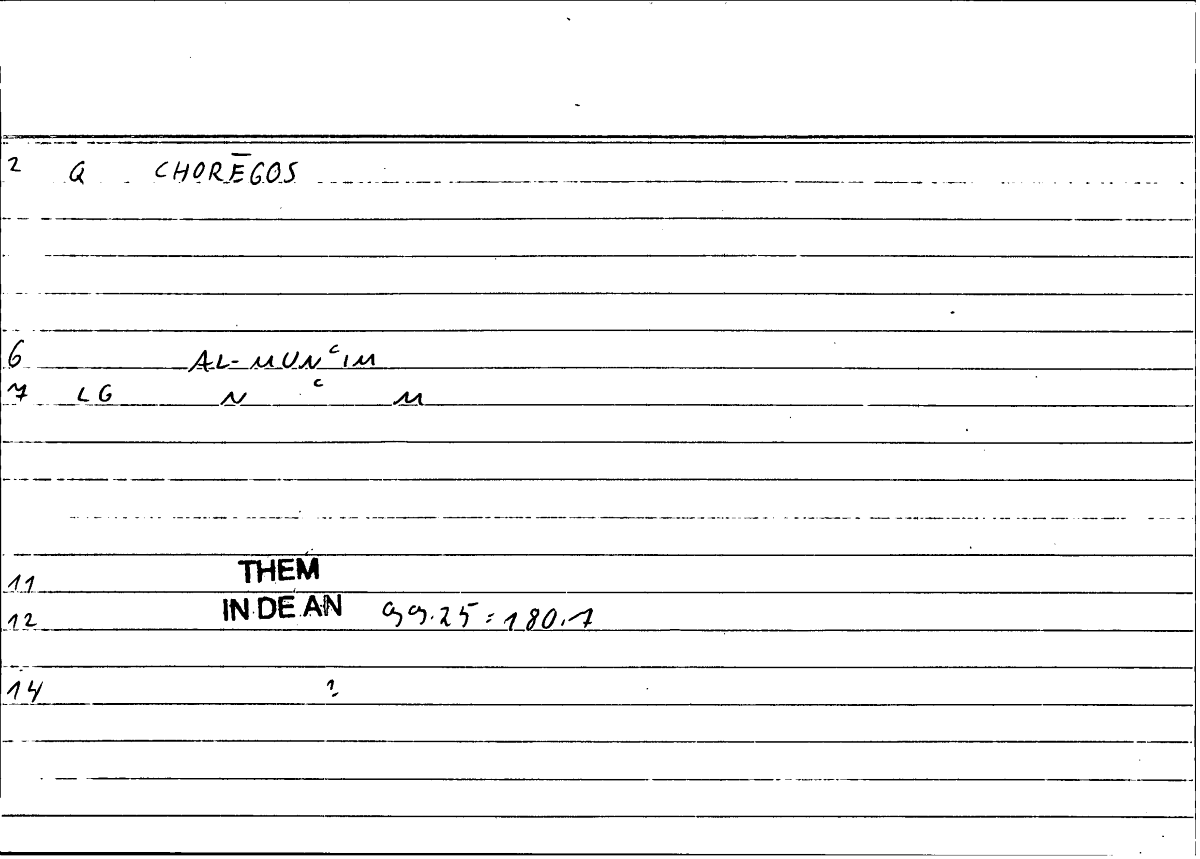 2 Q CHORĒGOS
6 AL-MUNʿIM
7 LG N ʿ M
11 THEM
12 IN DE AN 99.25 = 180.7
14 ?